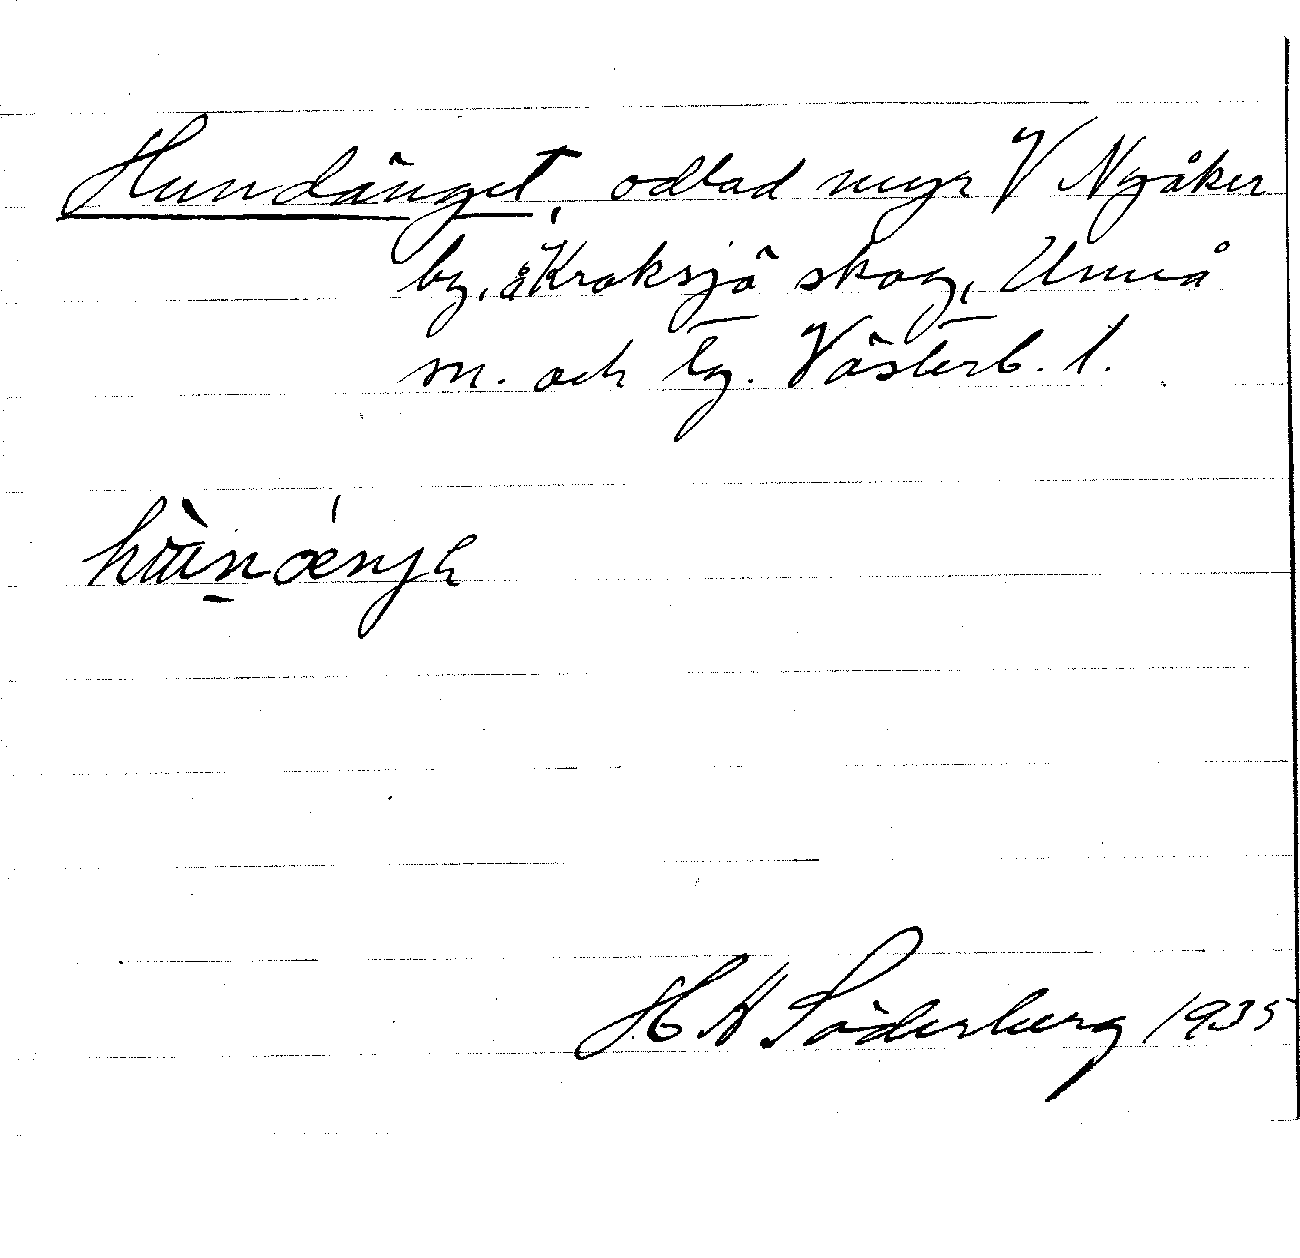 Hundänget, odlad myr V Nyåker
by, å Kroksjö skog, Umeå
m. och lg. Västerb. l.
H H Söderberg 1935